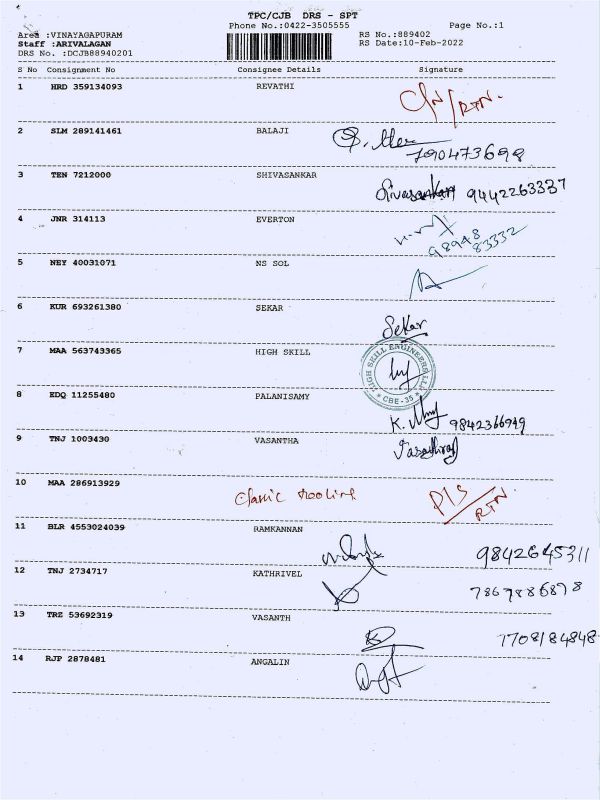 TPC/CJB DRS - SPT
Phone No.:0422-3505555 Page No.:1
Area :VINAYAGAPURAM RS No.:889402
Staff :ARIVALAGAN RS Date:10-Feb-2022
DRS No. :DCJB88940201
S No Consignment No Consignee Details Signature
1 HRD 359134093 REVATHI
C/N/RTN.
2 SLM 289141461 BALAJI
7090473698
3 TEN 7212000 SHIVASANKAR
Sivasankar 9442263337
4 JNR 314113 EVERTON
98948
83332
5 NEY 40031071 NS SOL
6 KUR 693261380 SEKAR
Sekar
7 MAA 563743365 HIGH SKILL
HIGH SKILL ENGINEERS LLP
* CBE-35 *
8 EDQ 11255480 PALANISAMY
9842366949
9 TNJ 1003430 VASANTHA
10 MAA 286913929
Classic D/S
RTN
11 BLR 4553024039 RAMKANNAN
9842645311
12 TNJ 2734717 KATHRIVEL
7867886878
13 TRZ 53692319 VASANTH
7708184848
14 RJP 2878481 ANGALIN